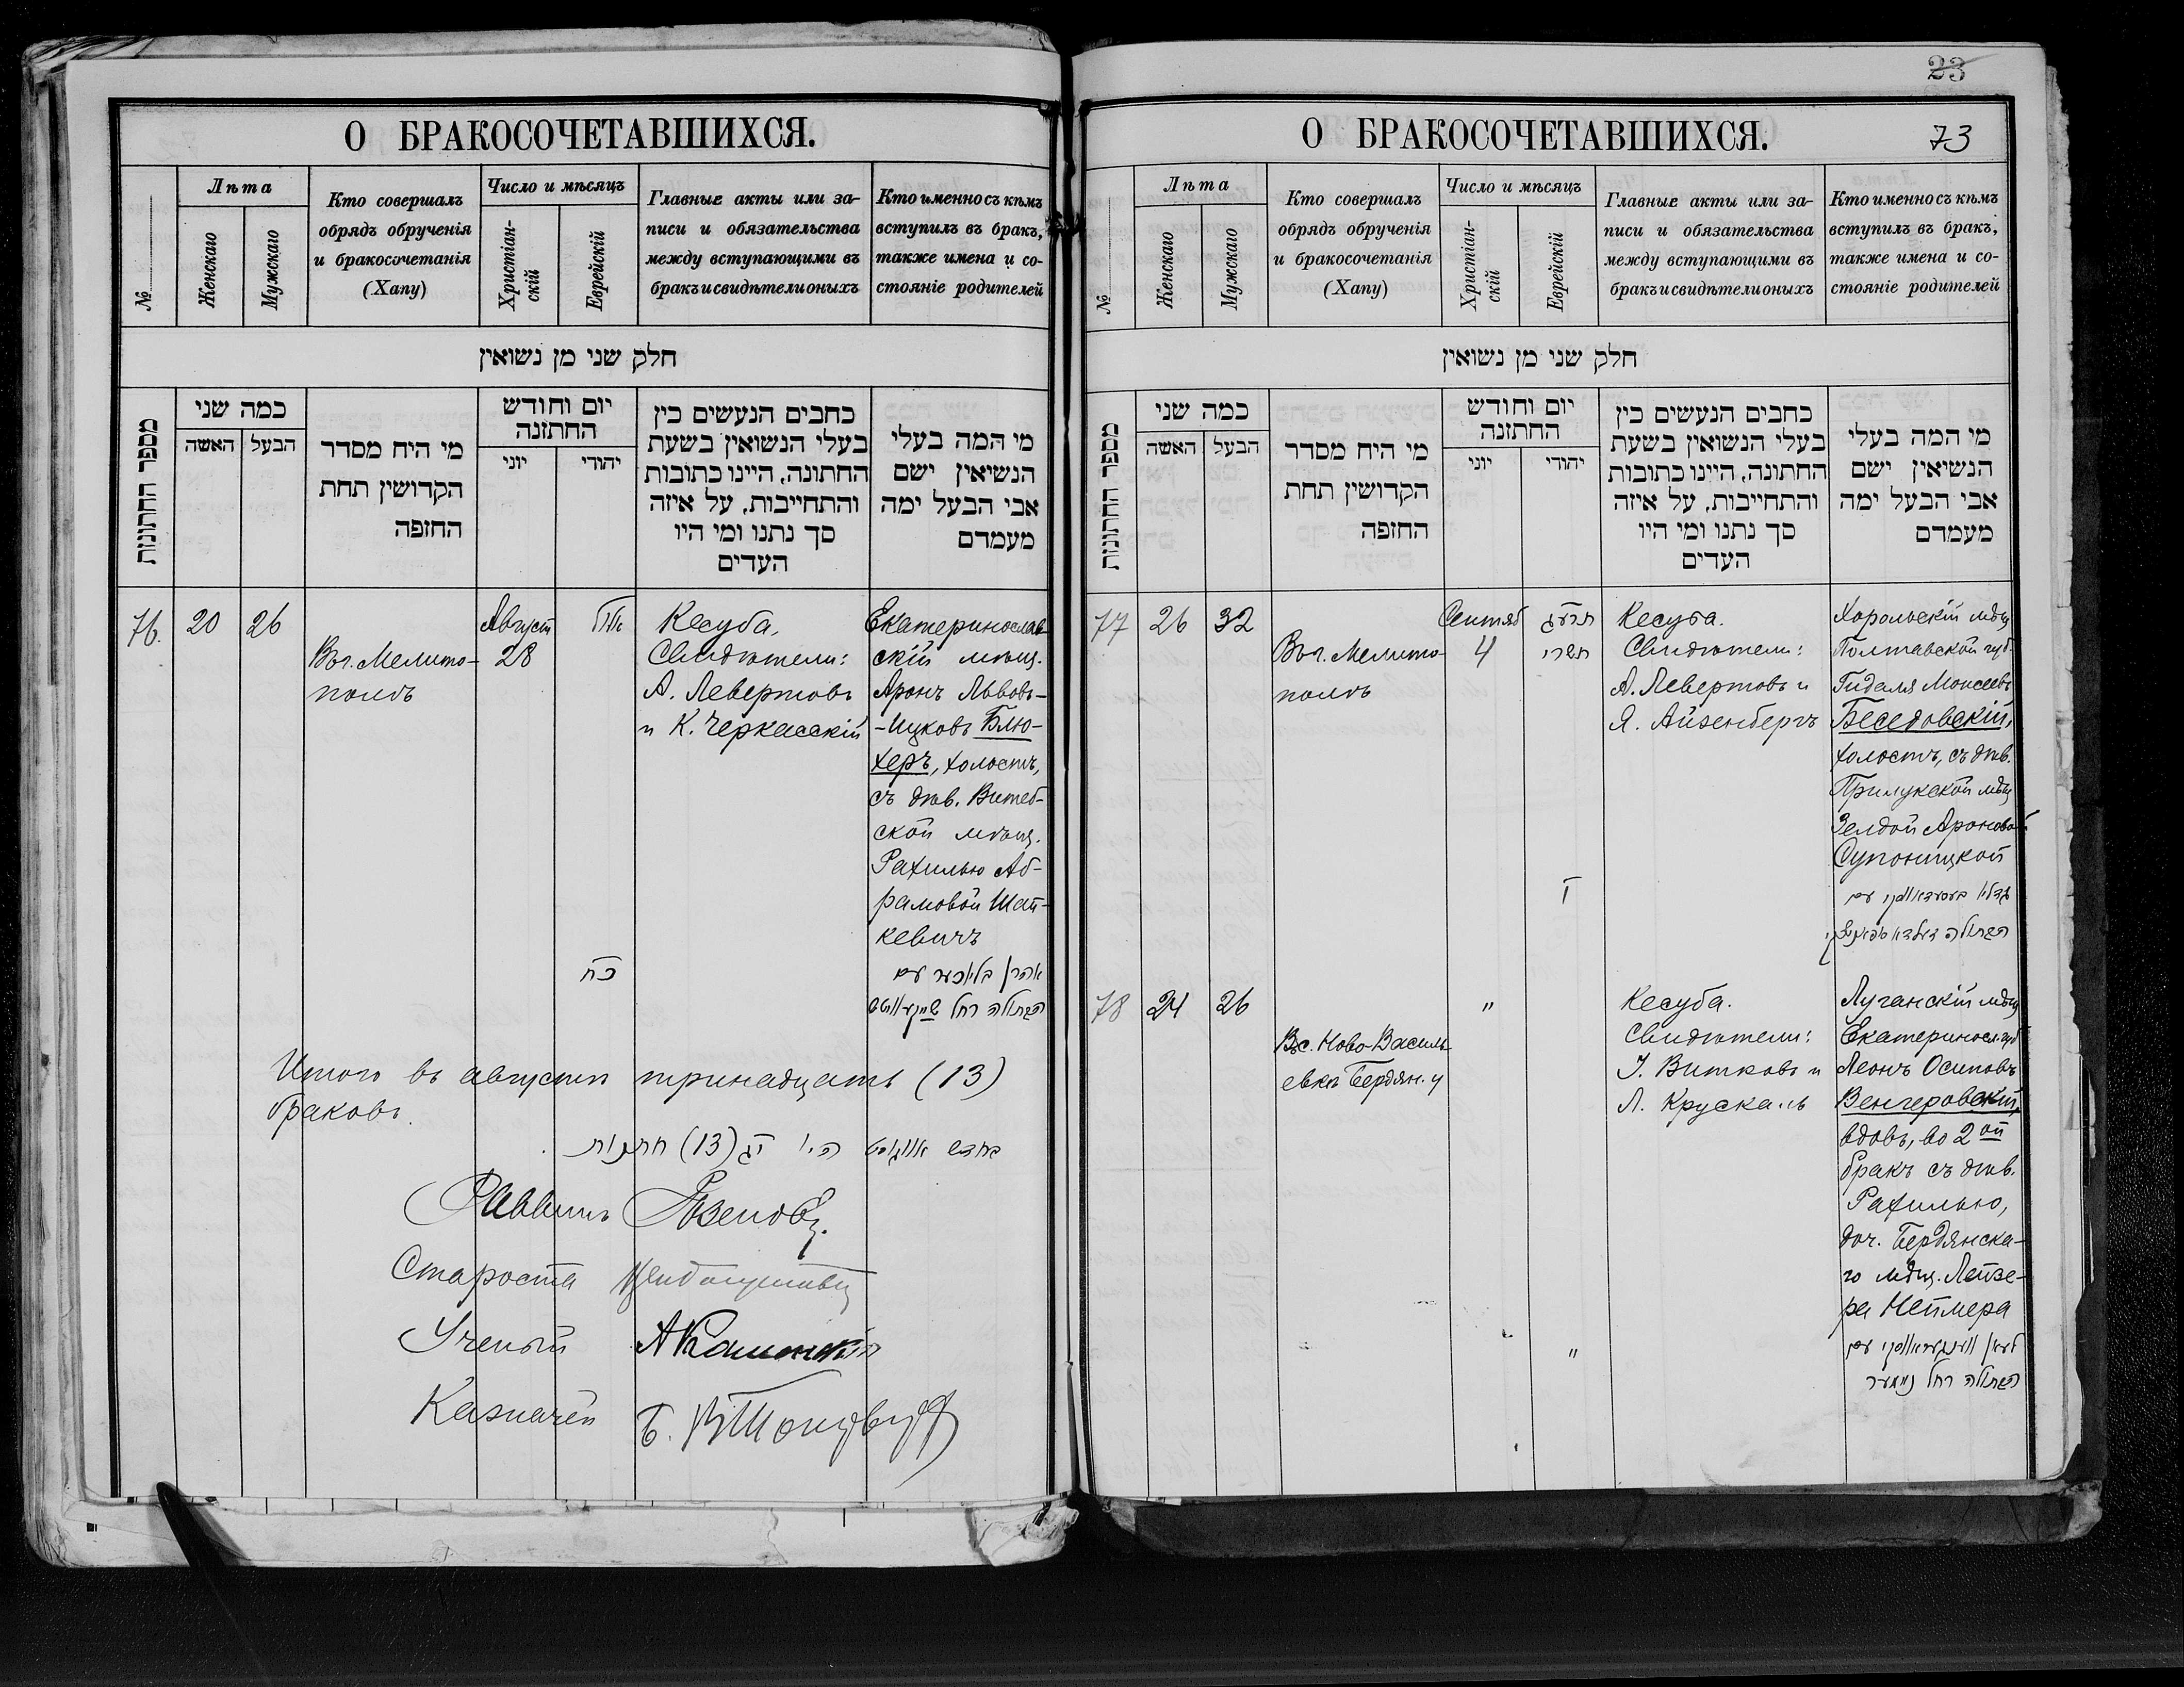 О БРАКОСОЧЕТАВШИХСЯ.
№
Лѣта
Женскаго
Мужскаго
Кто совершалъ
обрядъ обрученія
и бракосочетанія
(Хапу)
Число и мѣсяцъ
Христіан-
скій
Еврейскій
Главные акты или за-
писи и обязательства
между вступающими въ
бракъ и свидѣтели оныхъ
Кто именно съ кѣмъ
вступилъ въ бракъ,
также имена и со-
стояніе родителей
חלק שני מן נשואין
מספר החתונות
כמה שני
האשה
הבעל
מי היח מסדר
הקדושין תחת
החופה
יום וחודש
החתונה
יוני
יהודי
כתבים הנעשים כין
בעלי הנשואין בשעת
החתונה, היינו כתובות
והתחייבות, על איזה
סך נתנו ומי היו
העדים
מי המה בעלי
הנשיאין ישם
אבי הבעל ימה
מעמדם
76.
20
26
Въ г. Мелито-
полѣ
Август
28
אלול
כח
Кесуба.
Свидѣтели:
А. Левертовъ
и К. Черкасскій
Екатеринослав-
скій мѣщ.
Аронъ Львовъ-
-Ицковъ Блю-
херъ, холостъ,
съ дѣв. Витеб-
ской мѣщ.
Рахилью Аб-
рамовой Шап-
кевичъ
אהרן בליכער עם
הבתולה רחל
Итого въ августѣ тринадцать (13)
браковъ.
בחדש אווגוסט היו יג (13) חתונות
Раввинъ
Староста
Ученый А Каминскій
Казначей
23
73
О БРАКОСОЧЕТАВШИХСЯ.
№
Лѣта
Женскаго
Мужскаго
Кто совершалъ
обрядъ обрученія
и бракосочетанія
(Хапу)
Число и мѣсяцъ
Христіан-
скій
Еврейскій
Главные акты или за-
писи и обязательства
между вступающими въ
бракъ и свидѣтели оныхъ
Кто именно съ кѣмъ
вступилъ въ бракъ,
также имена и со-
стояніе родителей
חלק שני מן נשואין
מספר החתונות
כמה שני
האשה
הבעל
מי היח מסדר
הקדושין תחת
החופה
יום וחודש
החתונה
יוני
יהודי
כתבים הנעשים כין
בעלי הנשואין בשעת
החתונה, היינו כתובות
והתחייבות, על איזה
סך נתנו ומי היו
העדים
מי המה בעלי
הנשיאין ישם
אבי הבעל ימה
מעמדם
77
26
32
Въ г. Мелито-
полѣ
Сентяб
4
תרעג
תשרי
ו
Кесуба.
Свидѣтели:
А. Левертовъ и
Я. Айзенбергъ
Хорольскій мѣщ
Полтавской губ.
Гидаля Моисеевъ
Беседовскій,
холостъ, съ дѣв.
Прилукской мѣщ
Зелдой Ароновой
Супоницкой
גדליו בעסעדאווסקי עם
הבתולה זעלדא
78
24
26
Въ с. Ново-Василь-
евкѣ Бердян. у
"
"
Кесуба.
Свидѣтели:
І. Витковъ и
Л. Крускаль
Луганскій мѣщ
Екатериносл. губ
Леонъ Осиповъ
Венгеровскій,
вдовъ, во 2ой
бракъ съ дѣв.
Рахилью,
доч. Бердянска-
го мѣщ. Лейзе-
ра Неймера
לעאן ווענגעראווסקי עם
הבתולה רחל ניימער